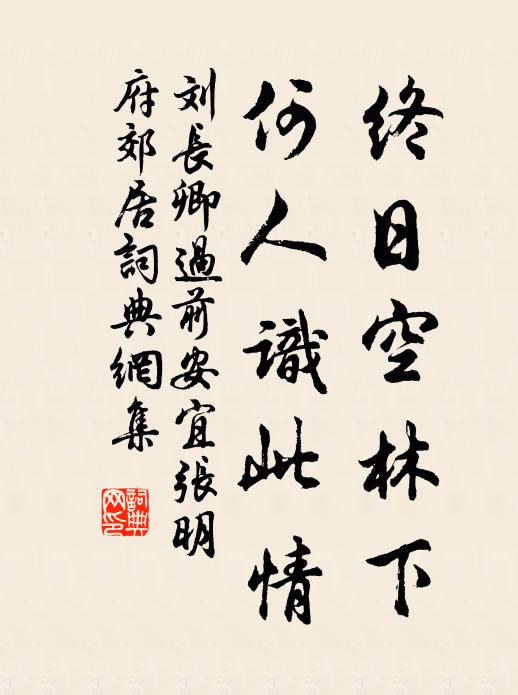 终日空林下
何人識此情
刘長卿過前安宜張明
府郊居詞典網集
詞典
网印